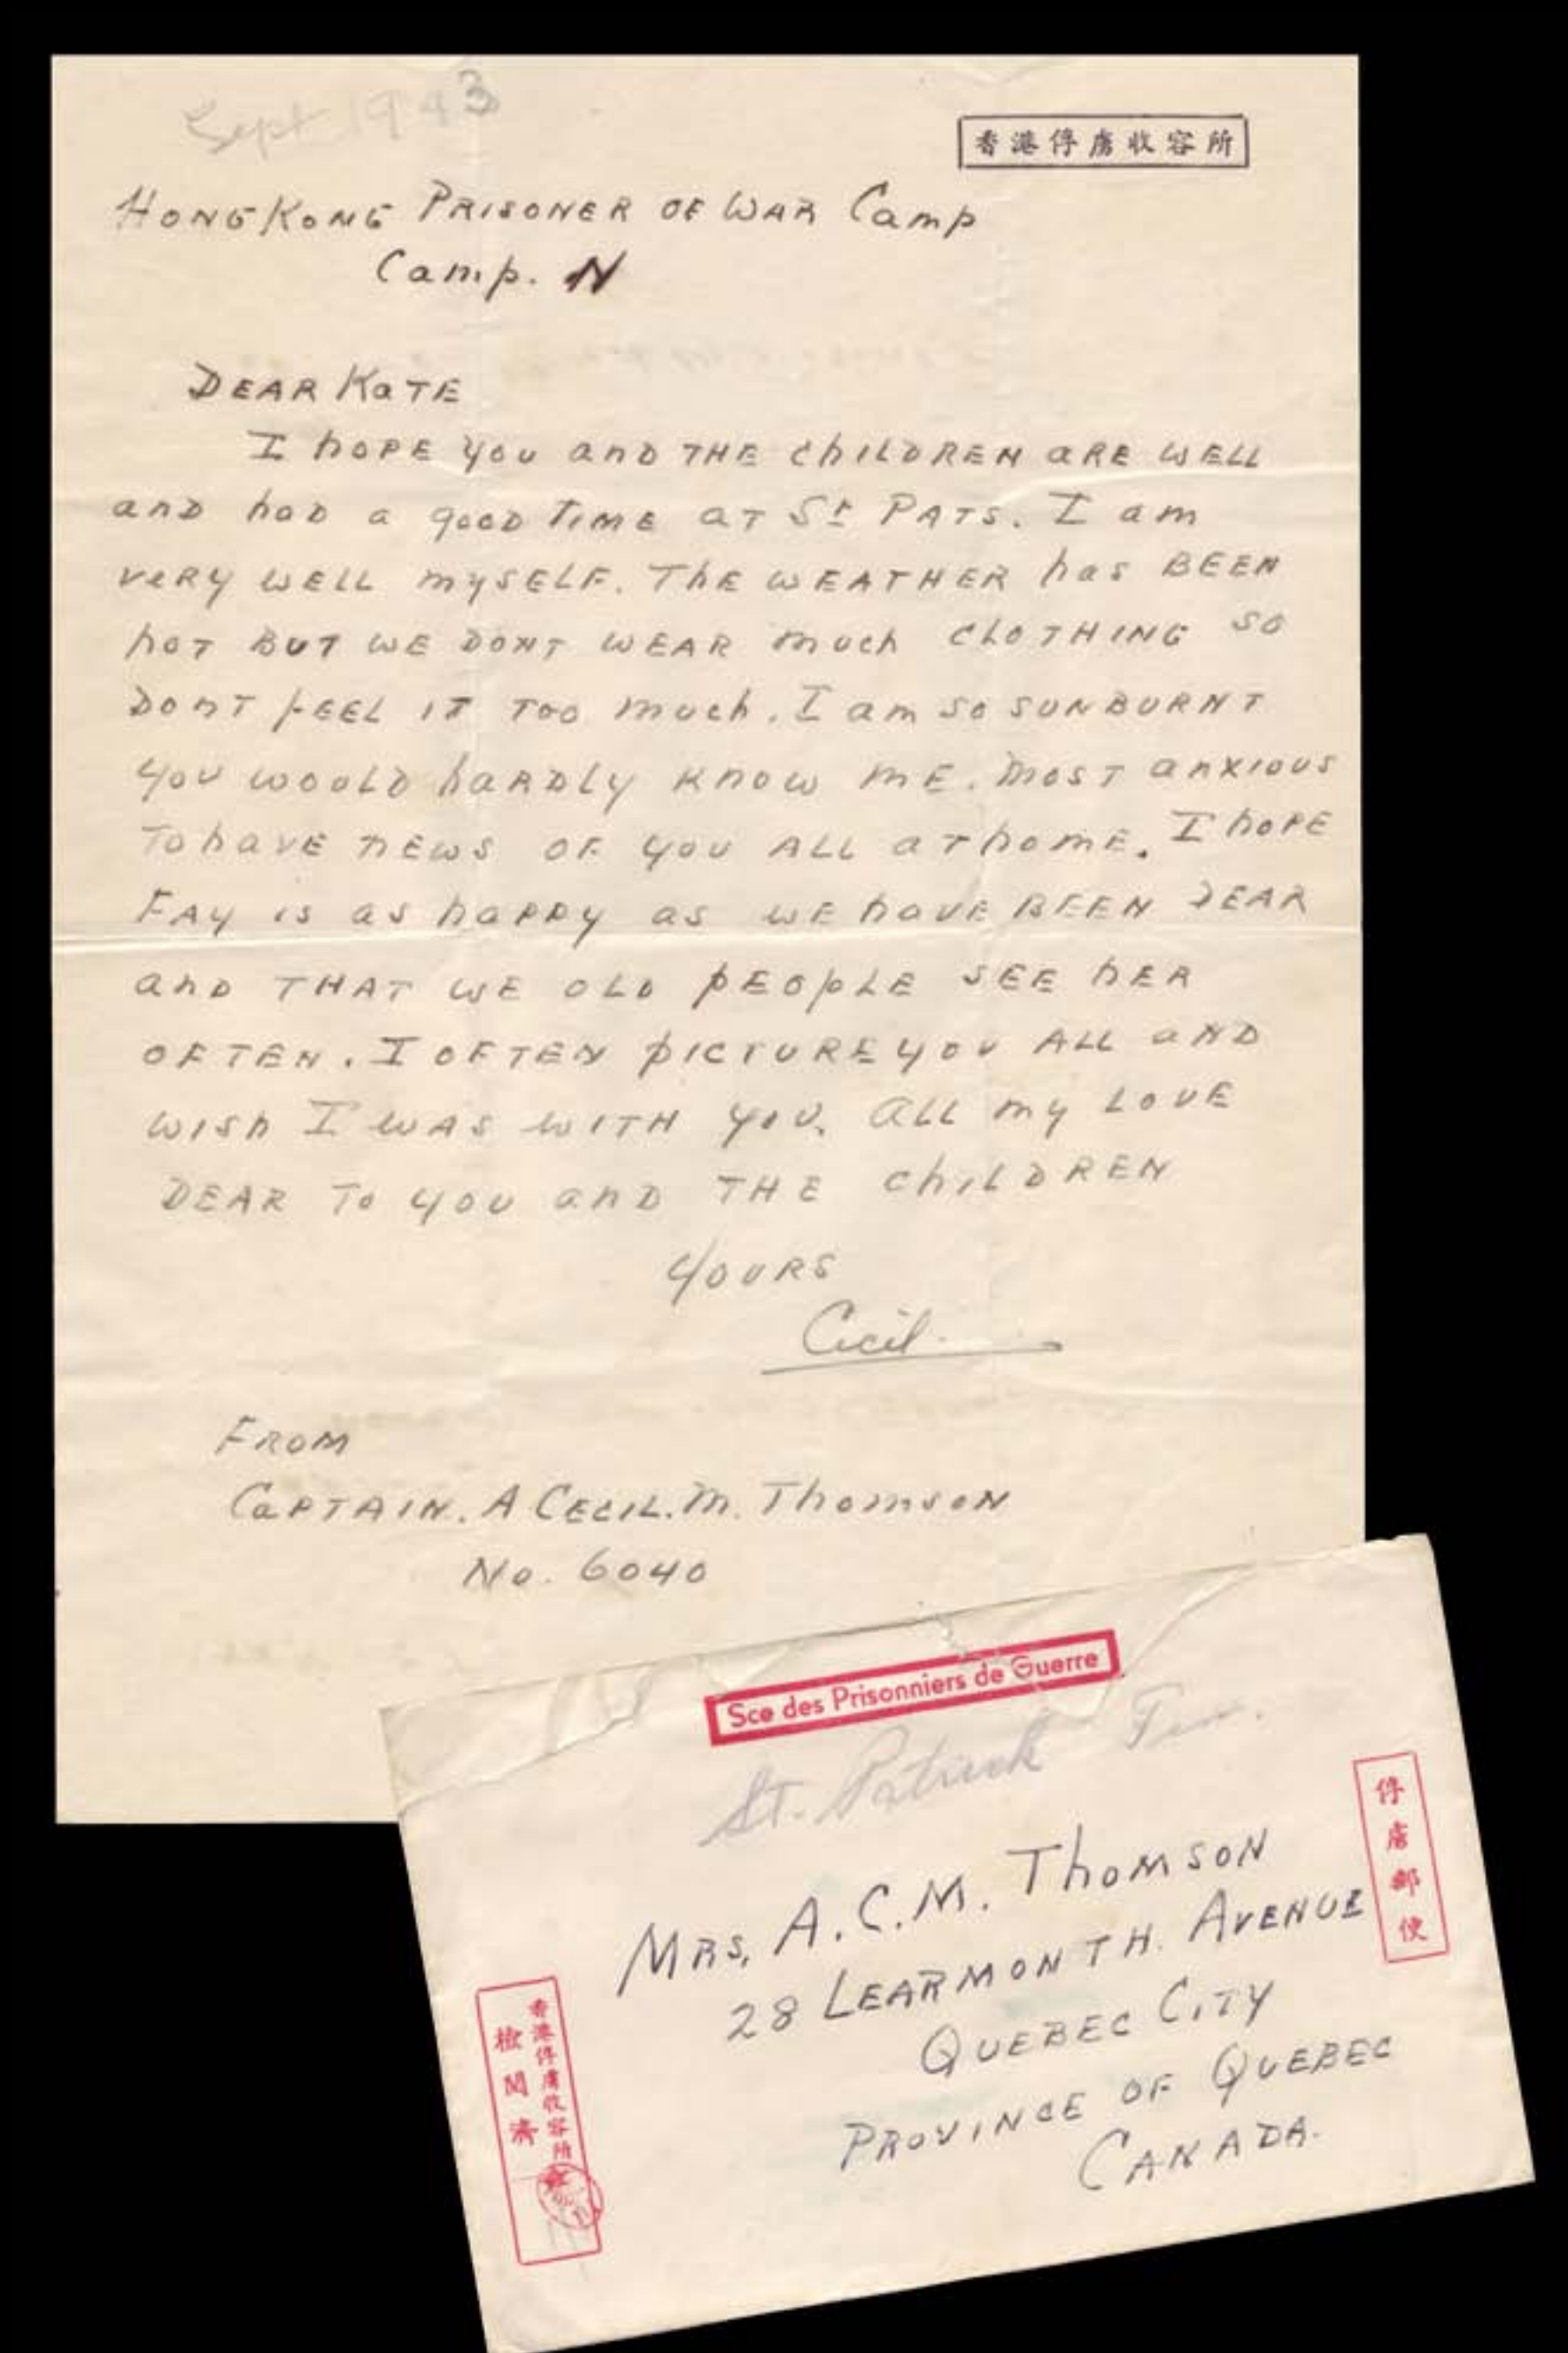 Sept 1943
香港俘虜收容所
HONG KONG PRISONER OF WAR Camp
Camp. N
DEAR KATE
I hOPE you and THE chILDREN aRE WELL
and had a good TIME aT St PATS. I am
veRy WELL mySELF. ThE WEATHER has BEEN
hoT BUT WE DONT WEAR much CLOTHING SO
DONT FEEL IT Too much. I am so SUNBURNT
you WOULD haRDLy KNOW mE. mosT anxious
To haVE NEWS OF you ALL aT homE. I hoPE
FAy is as haPPy as WE haVE BEEN DEAR
and THAT WE OLD PEOPLE SEE hER
OFTEN. I OFTEN PICTURE you ALL aND
WISh I WAS WITH you. aLL my LOVE
DEAR To you anD THE chILDREN
YOURS
Cecil
FROM
CaPTAIN. A CECIL. M. ThomsoN
No. 6040
Sce des Prisonniers de Guerre
St. Patrick
俘虜郵便
MRS. A.C.M. ThomSON
28 LEARMONTH. AVENUE
QUEBEC CITY
PROVINCE OF QUEBEC
CANADA.
香港俘虜收容所
檢閲濟